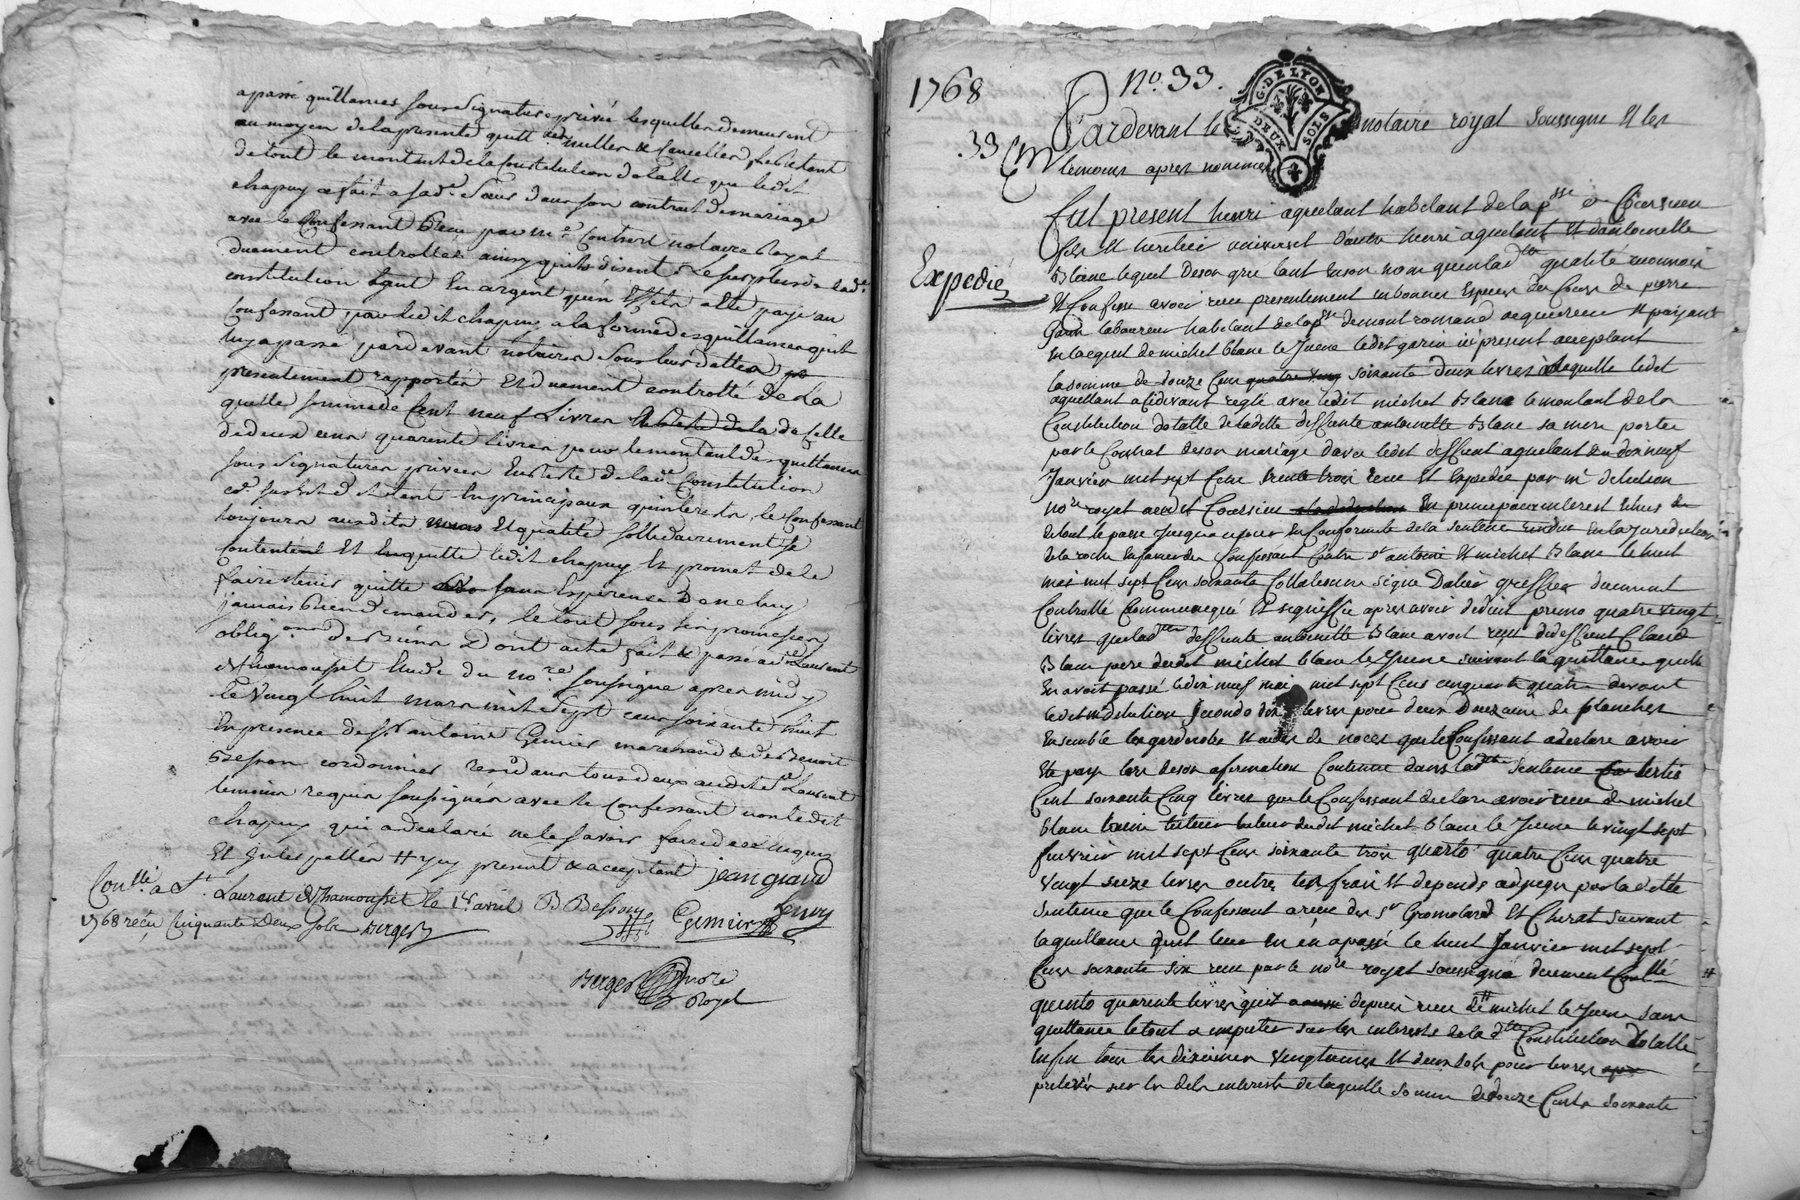 apassé quittances sous signature privée lesquelles demeurent
au moyen de la presente quitt. nulles & Cancellées, se
de tout le montant de la Constitution dotalle que ledit
chapuy a fait a sad. Sœur dans son contrat de mariage
avec le Confessant Reçu par Me. notaire Royal
duement controllé ainsy qu'ils disent Le surplus de lad.
constitution tant En argent qu'en Effets a été payé au
Confessant par ledit chapuy a la forme des quittances qu'il
luy a passé par devant notaires sous leurs dattes
presentement rapportés Et duement controllé de La
quelle somme de Cent neuf Livres de Celle
de deux cens quarente livres pour le montant des quittances
sous signatures privées En reste de lad. Constitution
En principaux qu'interets, le Confessant
toujours ausdits Et qualité sollidairement se
Contentent Et En quitte ledit chapuy Et promet de le
faire tenir quitte sans Esperence D'en luy
jamais Rien demander, le tout sous les promesses
oblig.ons de Biens Dont acte fait & passé a St. Laurent
de chamousset Etude du no.re soussigné apres midy
le Vingt huit mars mil Sept cens soixante huit
En presence de Sr. antoine Gemier marchand & de Benoit
Besson cordonnier resid. dans tous deux audit St. Laurent
temoins requis soussignés avec le Confessant non ledit
chapuy qui a declaré ne le savoir faire de ce Enquis
Et Interpellés present & acceptant jean giraud
Conllé. a St. Laurent de Chamousset le 1er. avril B Besson Gemier
1768 reçu Cinquante Deux Sols Berger
Berger no.re
Royal
1768 No. 33.
G. DE LYON
DEUX SOLS
33 Pardevant le notaire royal soussigné Et les
temoins apres nommés
Fut present henri aquelant habitant de la psse de Coursieu
fils Et heritier universel d'autre henri aquelant Et d'antoinette
Blanc lequel de son gre tant En son nom qu'en lad. qualité reconnoit
Expedié
Et Confesse avoir reçu presentement en bonnes Especes du Cours de pierre
Garin laboureur habitant de la psse de montromand acquereur Et payant
En l'acquit de michel Blanc le Jeune ledit garin ici present acceptant
la somme de douze Cens soixante deux livres a laquelle ledit
aquellant a cidevant reglé avec ledit michel Blanc le montant de la
Constitution dotalle de ladite deffunte antoinette Blanc sa mere portée
par le Contrat de son mariage d'avec ledit deffunt aquelant du dix neuf
Janvier mil sept Cens trente trois reçu Et Expedié par me delution
no.re royal audit Coursieu En principaux interest Echus
de tout le passé jusqu'a ce jour En Conformité de la sentence rendue En la Juridiction
de la roche En faveur du Confessant Contre Sr. antoine Et michel Blanc le huit
mai mil sept Cens soixante Collationné signé greffier duement
Controllé Communiqué Et signiffié apres avoir deduit primo quatre vingt
livres que lad. deffunte antoinette Blanc avoit reçu de deffunt Claude
Blanc pere dudit michel Blanc le Jeune suivant la quittance qu'elle
En avoit passé le dix neuf mai mil sept Cens cinquante quatre devant
ledit me delution secondo livres pour deux Douzaine de planches
Ensemble les garderobe Et de noces que le Confessant a declaré avoir
Eté payé lors de son afirmation Contenue dans lad. Sentence tertio
Cent soixante Cinq livres que le Confessant declare avoir reçu de michel
Blanc tuteur dudit michel Blanc le Jeune le vingt sept
fevrier mil sept Cens soixante trois quarto quatre Cens quatre
vingt seize livres outre les frais Et depends adjugés par ladite
Sentence que le Confessant a reçu des Srs. Gromolard Et Cherat suivant
la quittance qu'il leur En a passé le huit Janvier mil sept
Cens soixante six reçu par le no.re royal soussigné duement Contllé
quinto quarente livres qu'il depuis reçu dud. michel le Jeune sans
quittance le tout a imputer sur les interests de la d. Constitution dotalle
Enfin tous les dixiemes vingtiemes Et deux sols pour livres
prelevés sur les dits interests de laquelle somme de douze Cents soixante